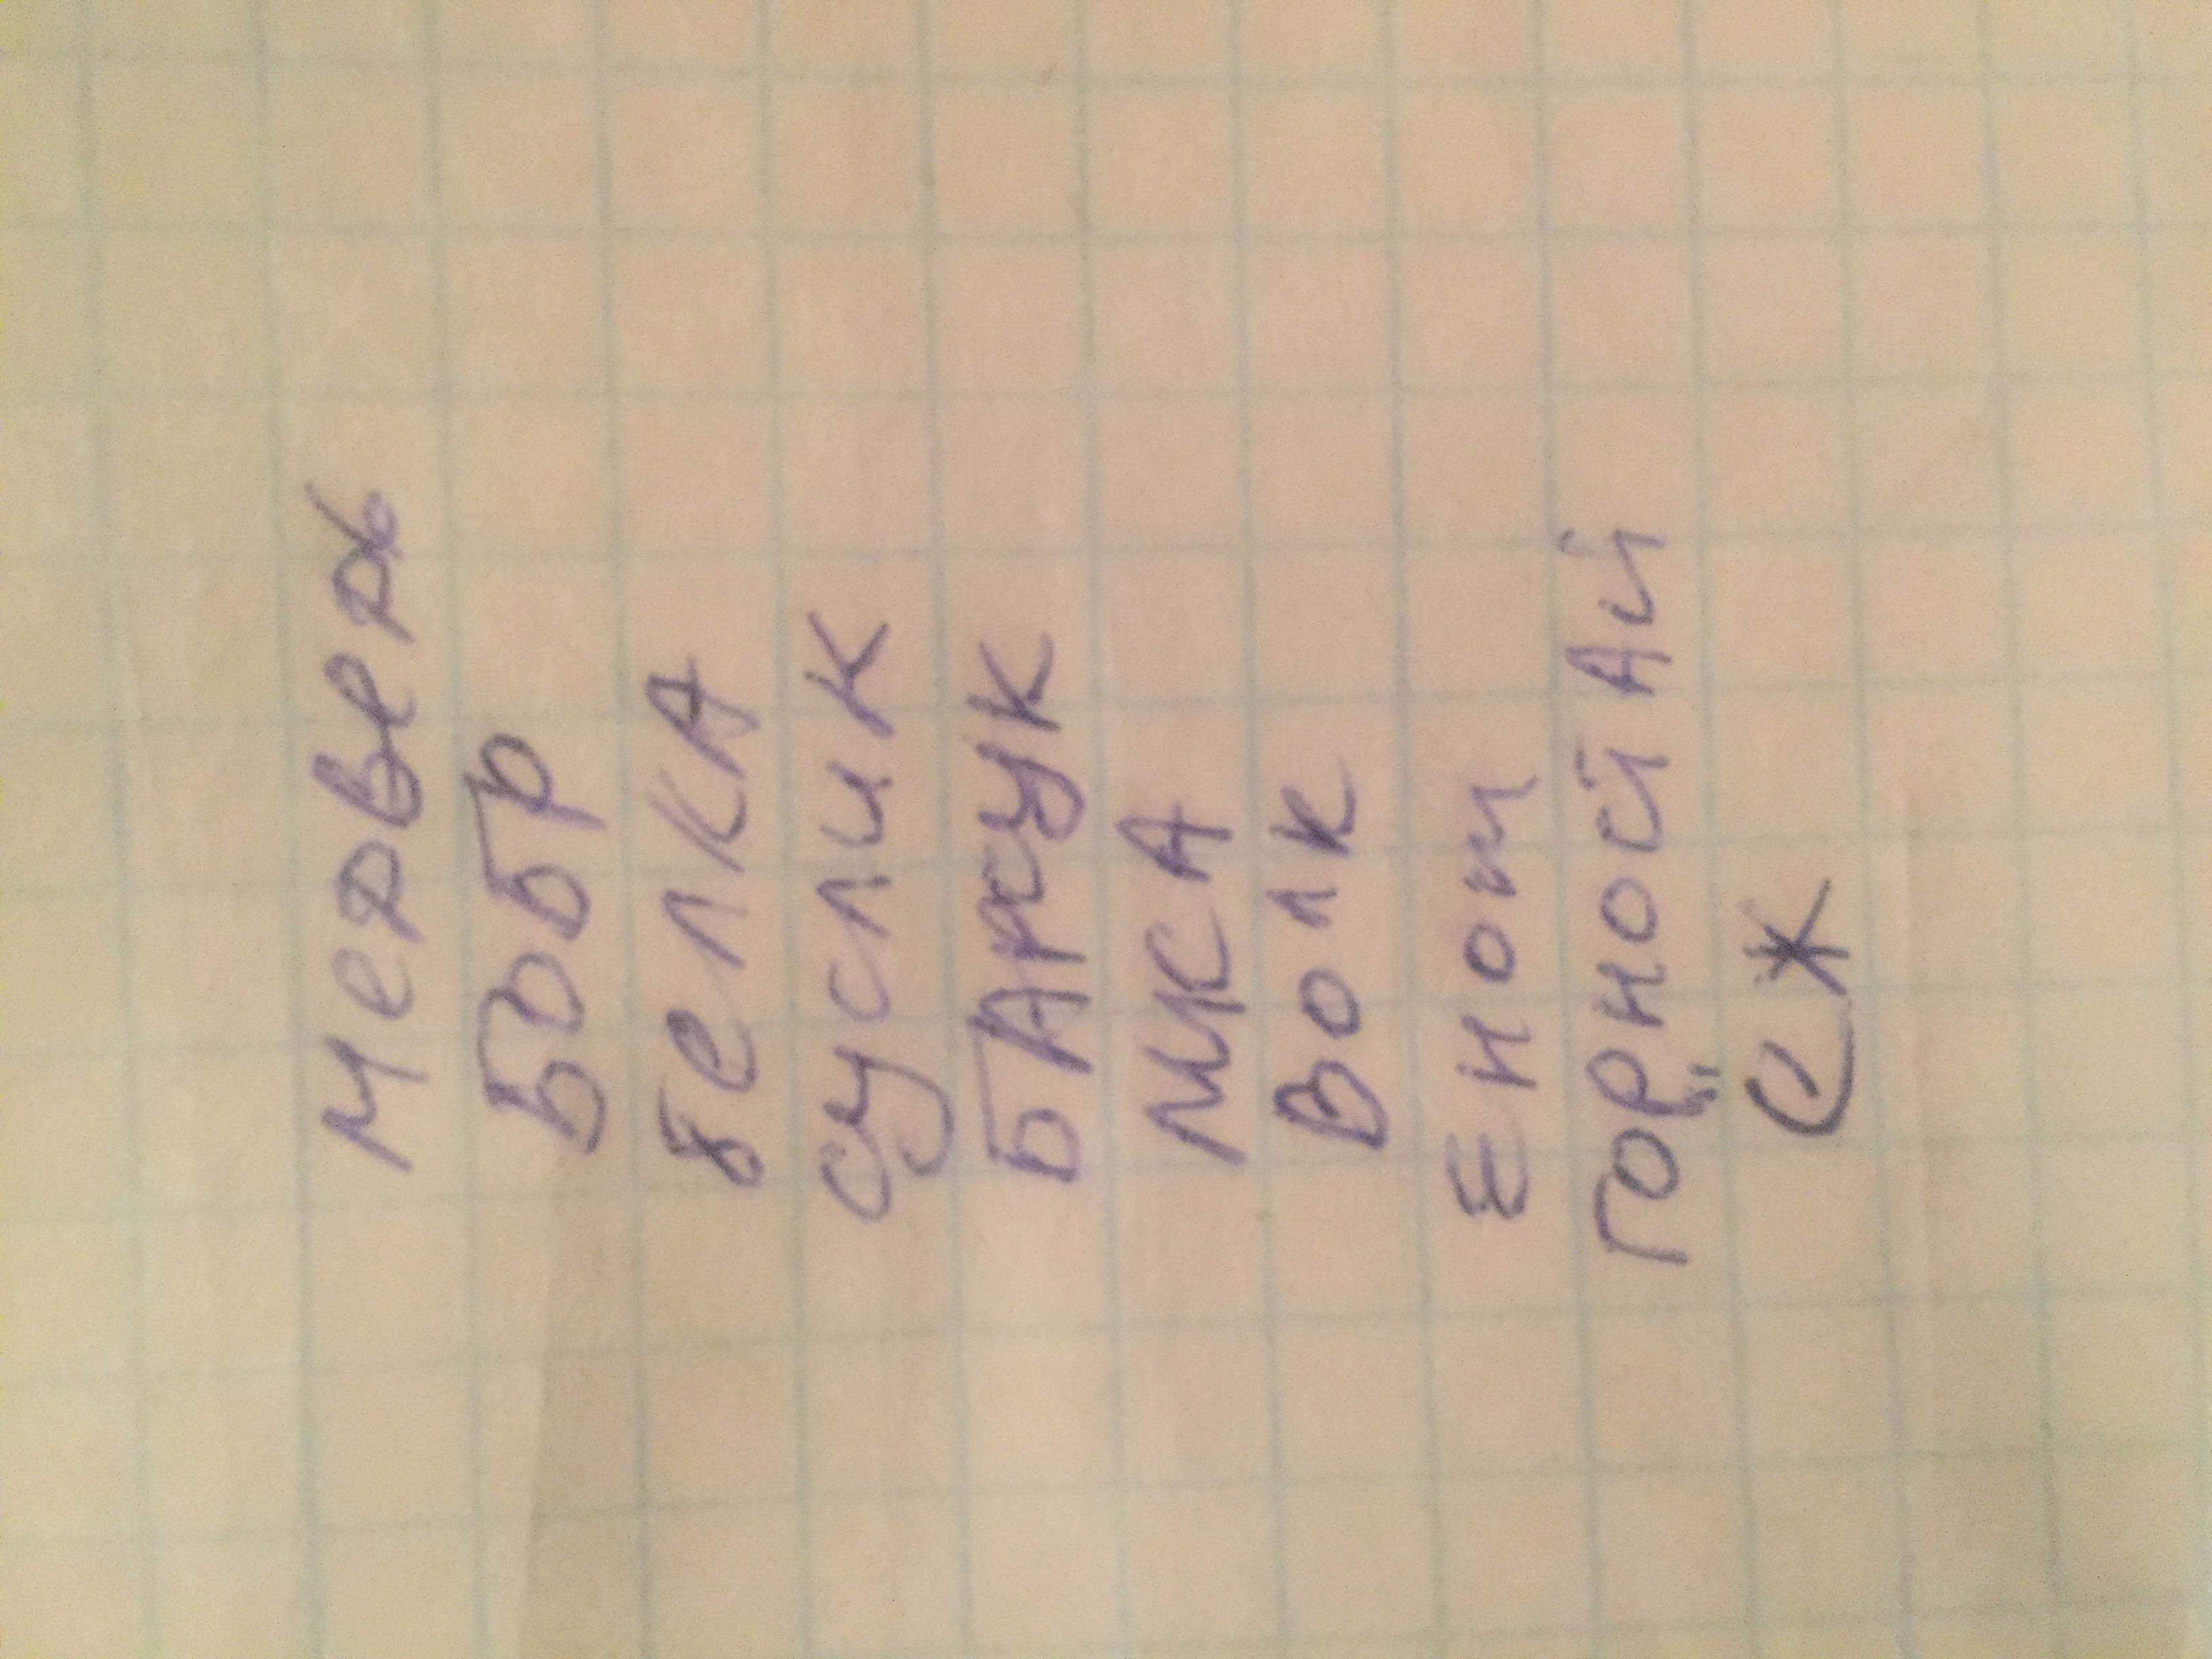 Медведь
БОБР
белКА
суслик
БАРСУК
лиСА
Волк
Енот
ГОРНОЙ Ай
ёж